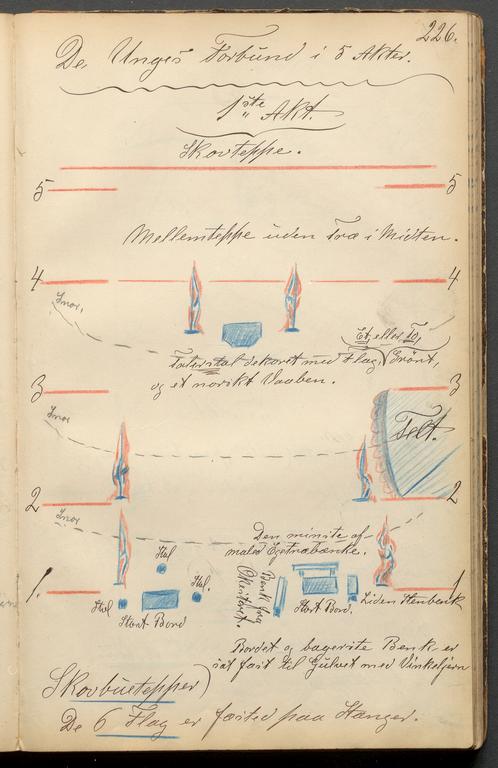 226.
De Unges Forbund i 5 Akter.
1ste Akt.
Skovteppe.
5 5
Mellemteppe uden Træ i Midten.
4 4
Snor,
Et, eller To,
Talerstol dekoret med Flag, Grönt,
og et norskt Vaaben.
3 3
Snor
Telt.
2 2
Snor
Den minste af
maled Egetræbænke.
Stol
Stol.
Stol
Stort Bord
Benk fra
Stort Bord.
Liden Stenbenk
1. 1
Bordet og bagerste Benk er
sat fast til Gulvet med Vinkeljern
Skovbuetepper)
De 6 Flag er fæsted paa Stænger.